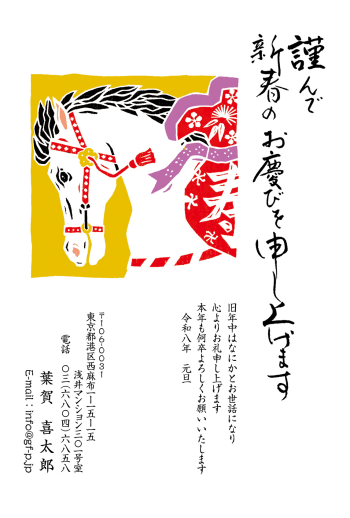 謹んで
新春の
お慶びを
申し上げます
寿
旧年中はなにかとお世話になり
心よりお礼申し上げます
本年も何卒よろしくお願いいたします
令和八年　元旦
〒106-0031
東京都港区西麻布一-一五-一五
浅井マンション三〇一号室
電話　〇三(六八〇四)六八五八
葉賀　喜太郎
E-mail：info@gf-p.jp